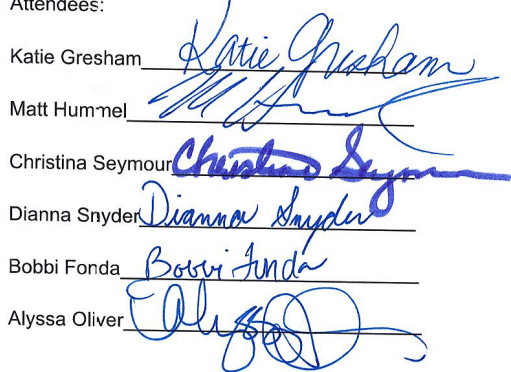 Attendees:
Katie Gresham Katie Gresham
Matt Hummel M H
Christina Seymour Christina Seymour
Dianna Snyder Dianna Snyder
Bobbi Fonda Bobbi Fonda
Alyssa Oliver